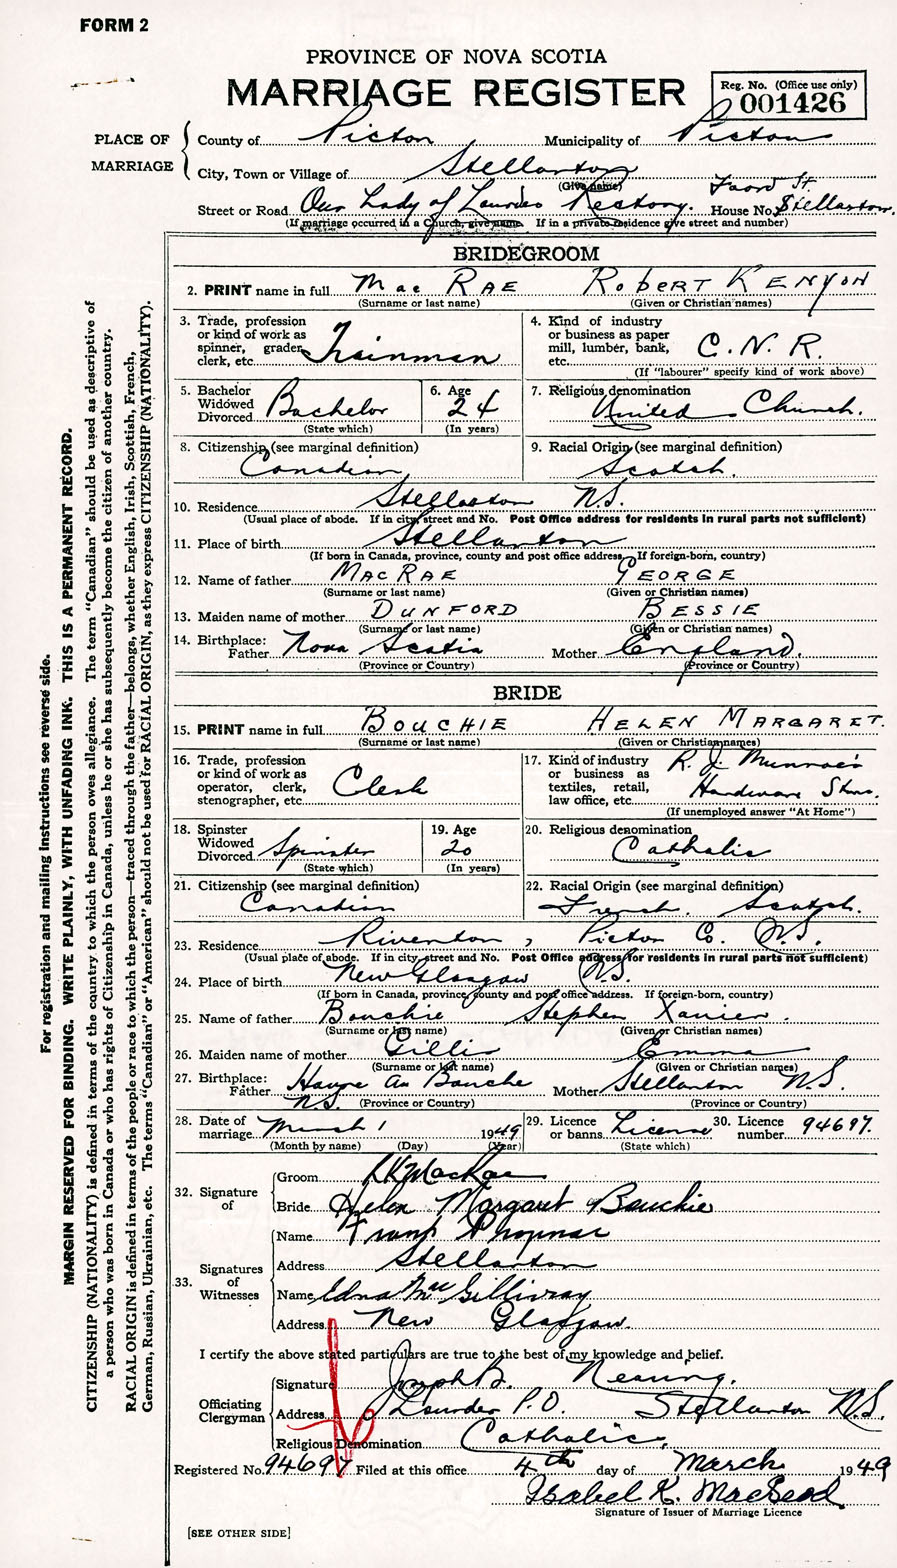 FORM 2
PROVINCE OF NOVA SCOTIA
MARRIAGE REGISTER
Reg. No. (Office use only)
001426
PLACE OF MARRIAGE
County of Picton Municipality of Picton
City, Town or Village of Stellarton
(Give name)
Foord St.
Street or Road Our Lady of Lourdes Rectory. House No. Stellarton.
(If marriage occurred in a Church, give name. If in a private residence give street and number)
BRIDEGROOM
2. PRINT name in full MacRAE ROBERT KENYON
(Surname or last name) (Given or Christian names)
3. Trade, profession or kind of work as spinner, grader, clerk, etc. Trainman
4. Kind of industry or business as paper mill, lumber, bank, etc. C.N.R.
(If "labourer" specify kind of work above)
5. Bachelor Widowed Divorced Bachelor
(State which)
6. Age 24
(In years)
7. Religious denomination United Church.
8. Citizenship (see marginal definition) Canadian
9. Racial Origin (see marginal definition) Scotch.
10. Residence Stellarton N.S.
(Usual place of abode. If in city, street and No. Post Office address for residents in rural parts not sufficient)
11. Place of birth Stellarton
(If born in Canada, province, county and post office address. If foreign-born, country)
12. Name of father MACRAE GEORGE
(Surname or last name) (Given or Christian names)
13. Maiden name of mother DUNFORD BESSIE
(Surname or last name) (Given or Christian names)
14. Birthplace: Father Nova Scotia Mother England.
(Province or Country) (Province or Country)
BRIDE
15. PRINT name in full BOUCHIE HELEN MARGARET.
(Surname or last name) (Given or Christian names)
16. Trade, profession or kind of work as operator, clerk, stenographer, etc. Clerk
17. Kind of industry or business as textiles, retail, law office, etc. R. J. Munroe's Hardware Store.
(If unemployed answer "At Home")
18. Spinster Widowed Divorced Spinster
(State which)
19. Age 20
(In years)
20. Religious denomination Catholic
21. Citizenship (see marginal definition) Canadian
22. Racial Origin (see marginal definition) French. Scotch.
23. Residence Riverton, Picton Co. N.S.
(Usual place of abode. If in city, street and No. Post Office address for residents in rural parts not sufficient)
24. Place of birth New Glasgow N.S.
(If born in Canada, province, county and post office address. If foreign-born, country)
25. Name of father Bouchie Stephen Xavier.
(Surname or last name) (Given or Christian names)
26. Maiden name of mother Gillis Emma
(Surname or last name) (Given or Christian names)
27. Birthplace: Father Havre au Bouche N.S. Mother Stellarton N.S.
(Province or Country) (Province or Country)
28. Date of marriage March 1 1949
(Month by name) (Day) (Year)
29. Licence or banns License
(State which)
30. Licence number 94697.
32. Signature of
Groom RKMacRae
Bride Helen Margaret Bouchie
33. Signatures of Witnesses
Name Frank
Address Stellarton
Name Edna MacGillivray
Address New Glasgow.
I certify the above stated particulars are true to the best of my knowledge and belief.
Officiating Clergyman
Signature Joseph B. Nearing.
Address Lourdes P.O. Stellarton N.S.
Religious Denomination Catholic.
Registered No. 94697 Filed at this office 4th day of March 1949
Isabel K. MacLeod
Signature of Issuer of Marriage Licence
[SEE OTHER SIDE]
For registration and mailing instructions see reverse side.
MARGIN RESERVED FOR BINDING. WRITE PLAINLY, WITH UNFADING INK. THIS IS A PERMANENT RECORD.
CITIZENSHIP (NATIONALITY) is defined in terms of the country to which the person owes allegiance. The term "Canadian" should be used as descriptive of
a person who was born in Canada or who has rights of Citizenship in Canada, unless he or she has subsequently become the citizen of another country.
RACIAL ORIGIN is defined in terms of the people or race to which the person—traced through the father—belongs, whether English, Irish, Scottish, French,
German, Russian, Ukrainian, etc. The terms "Canadian" or "American" should not be used for RACIAL ORIGIN, as they express CITIZENSHIP (NATIONALITY).